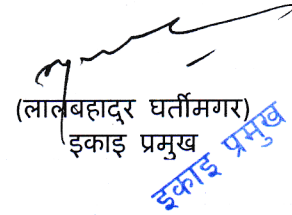 (लालबहादुर घर्तीमगर)
इकाइ प्रमुख
इकाइ प्रमुख